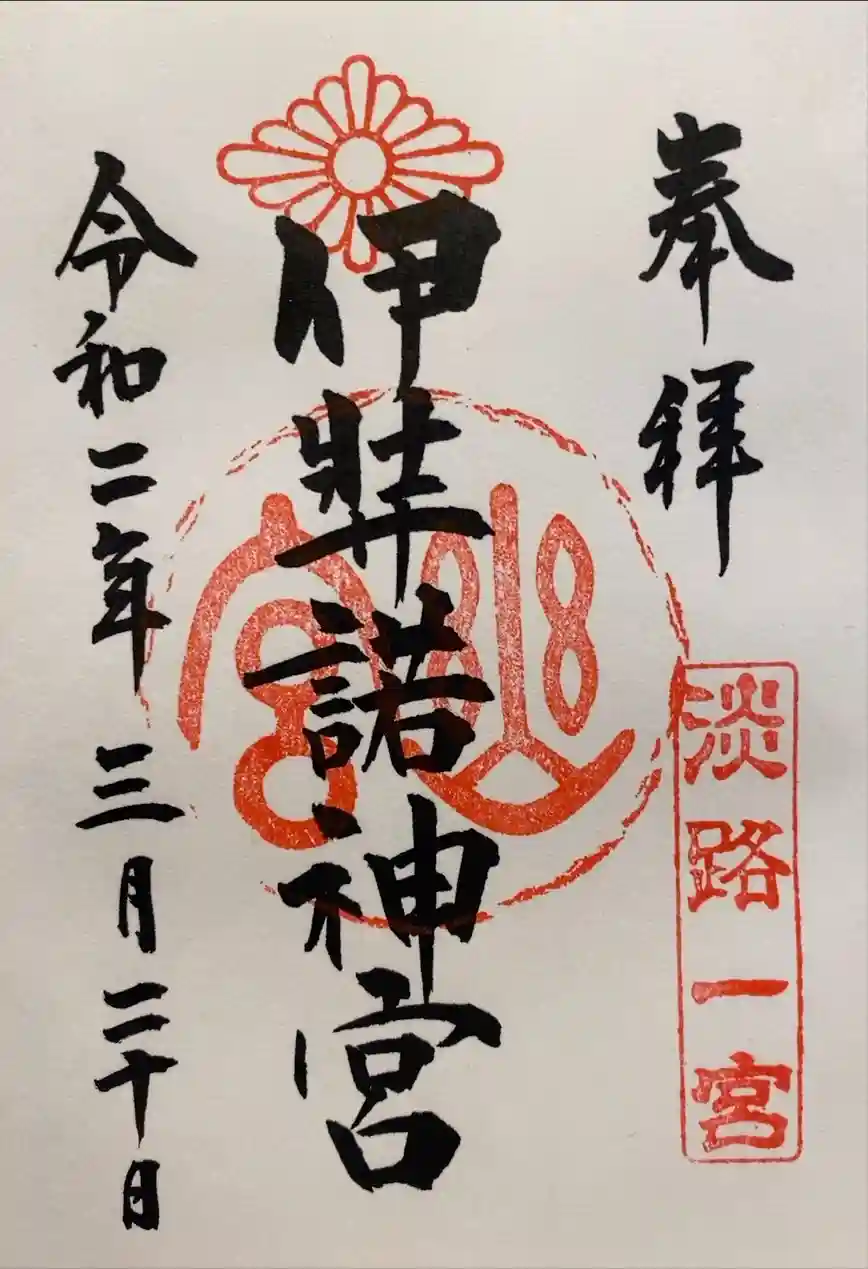 奉拝
淡路一宮
伊弉諾神宮
幽宮
令和二年三月二十日